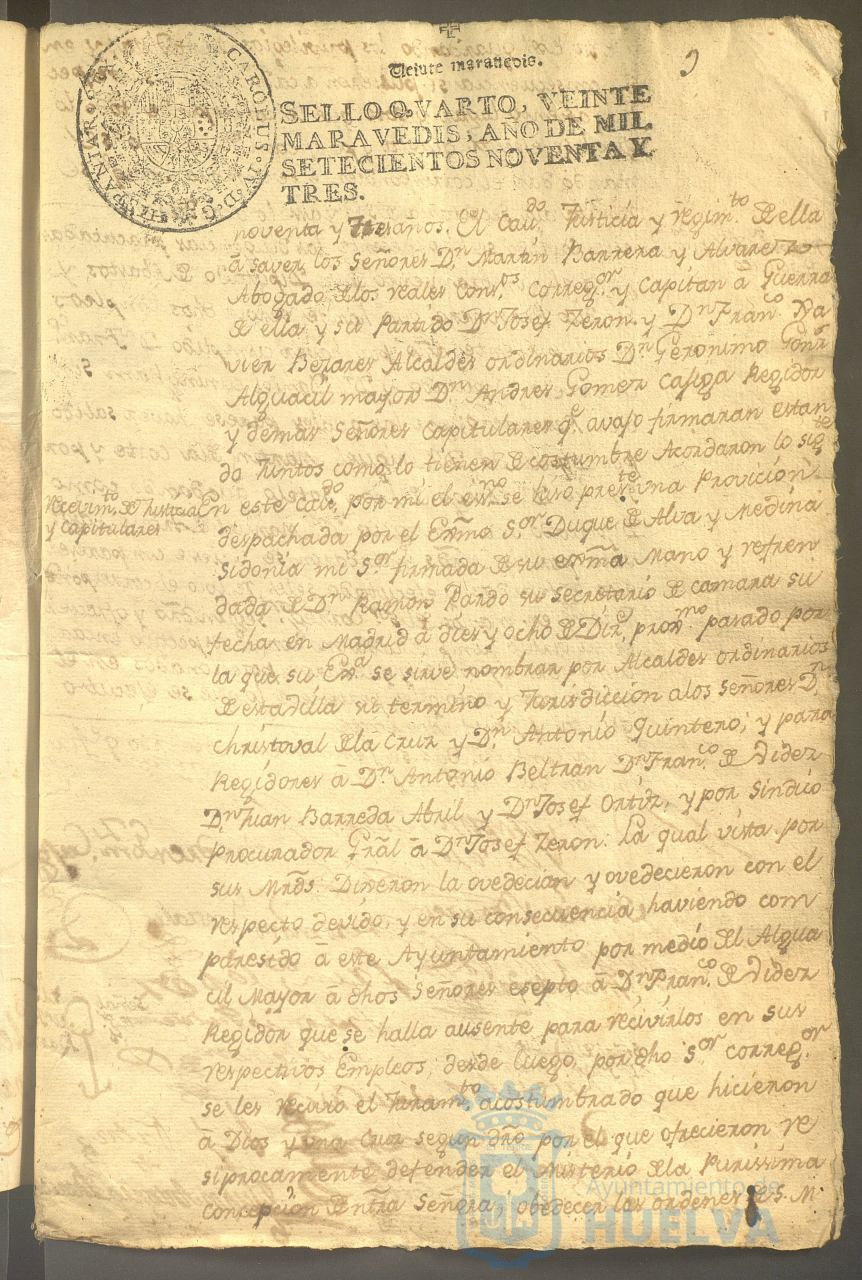 Veinte maravedis.
CAROLUS · IV · D · G · HISPANIAR ·
SELLO QVARTO, VEINTE
MARAVEDIS, AÑO DE MIL
SETECIENTOS NOVENTA Y
TRES.
noventa y tres años. El Cav.do Justicia y regim.to de ella
â saver los Señores D.n Martin Barrera y Alvarez
Abogado de los reales Cons.os Correg.or y Capitan â Guerra
de ella y su Partido D.n Josef Zeron, y D.n Fran.co Xa
vier Bezares Alcaldes ordinarios D.n Geronimo Gonz
Alguacil mayor D.n Andres Gomez Regidor
y demas Señores Capitulares q.e avajo firmaran estan
do Juntos como lo tienen de costumbre Acordaron lo sig.te
recevim.to de Justicia
y Capitulares
En este Cav.do por mi el es.no se hiso pres.te una Provicion
despachada por el Exmo S.or Duque de Alva y Medina
sidonia mi S.or firmada de su exma Mano y refren
dada de D.n Ramon Pardo su secretario de camara su
fecha en Madrid â dies y ocho de Diz.e prox.mo pasado por
la que su Ex.a se sirve nombrar por Alcaldes ordinarios
de esta villa su termino y Jurisdiccion a los señores D.n
Christoval de la Cruz y D.n Antonio Quintero, y para
Regidores â D.n Antonio Beltran D.n Fran.co de Videz
D.n Juan Barreda Abril y D.n Josef Ortiz, y por sindico
Procurador Gral â D.n Josef Zeron. La qual vista por
sus Mrds. Dixeron la ovedecian y ovedecieron con el
respecto devido, y en su consecuencia haviendo com
paresido â este Ayuntamiento por medio del Algua
cil Mayor â dhos Señores esepto â D.n Fran.co de Videz
Regidor que se halla ausente para recivirlos en sus
respectivos Empleos, desde luego, por dho S.or correg.or
se les recivió el Juram.to acostumbrado que hicieron
â Dios y una Cruz segun dro por el que ofrecieron re
siprocamente defender el Misterio de la Purissima
Concepcion de Ntra Señora, obedecer las ordenes de S. M.
Ayuntamiento de
HUELVA